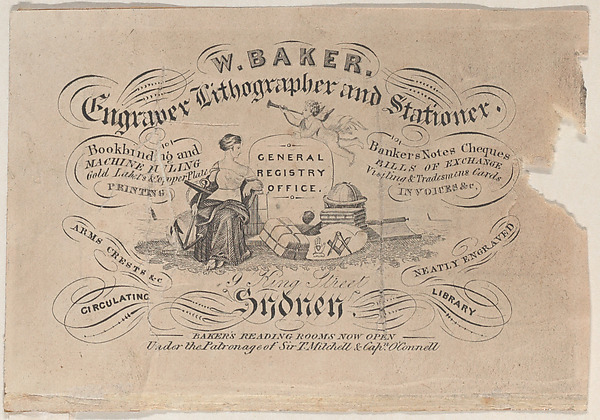 W. BAKER.
Engraver Lithographer and Stationer.
Bookbinding and
MACHINE RULING
Gold Labels & Copper Plate
PRINTING
GENERAL
REGISTRY
OFFICE.
Bankers Notes Cheques
BILLS OF EXCHANGE
Visiting & Tradesmens Cards
INVOICES &c.
ARMS CRESTS &c
NEATLY ENGRAVED
King Street
Sydney.
CIRCULATING
LIBRARY
BAKER'S READING ROOMS NOW OPEN
Under the Patronage of Sir T. Mitchell & Capn. O'Connell